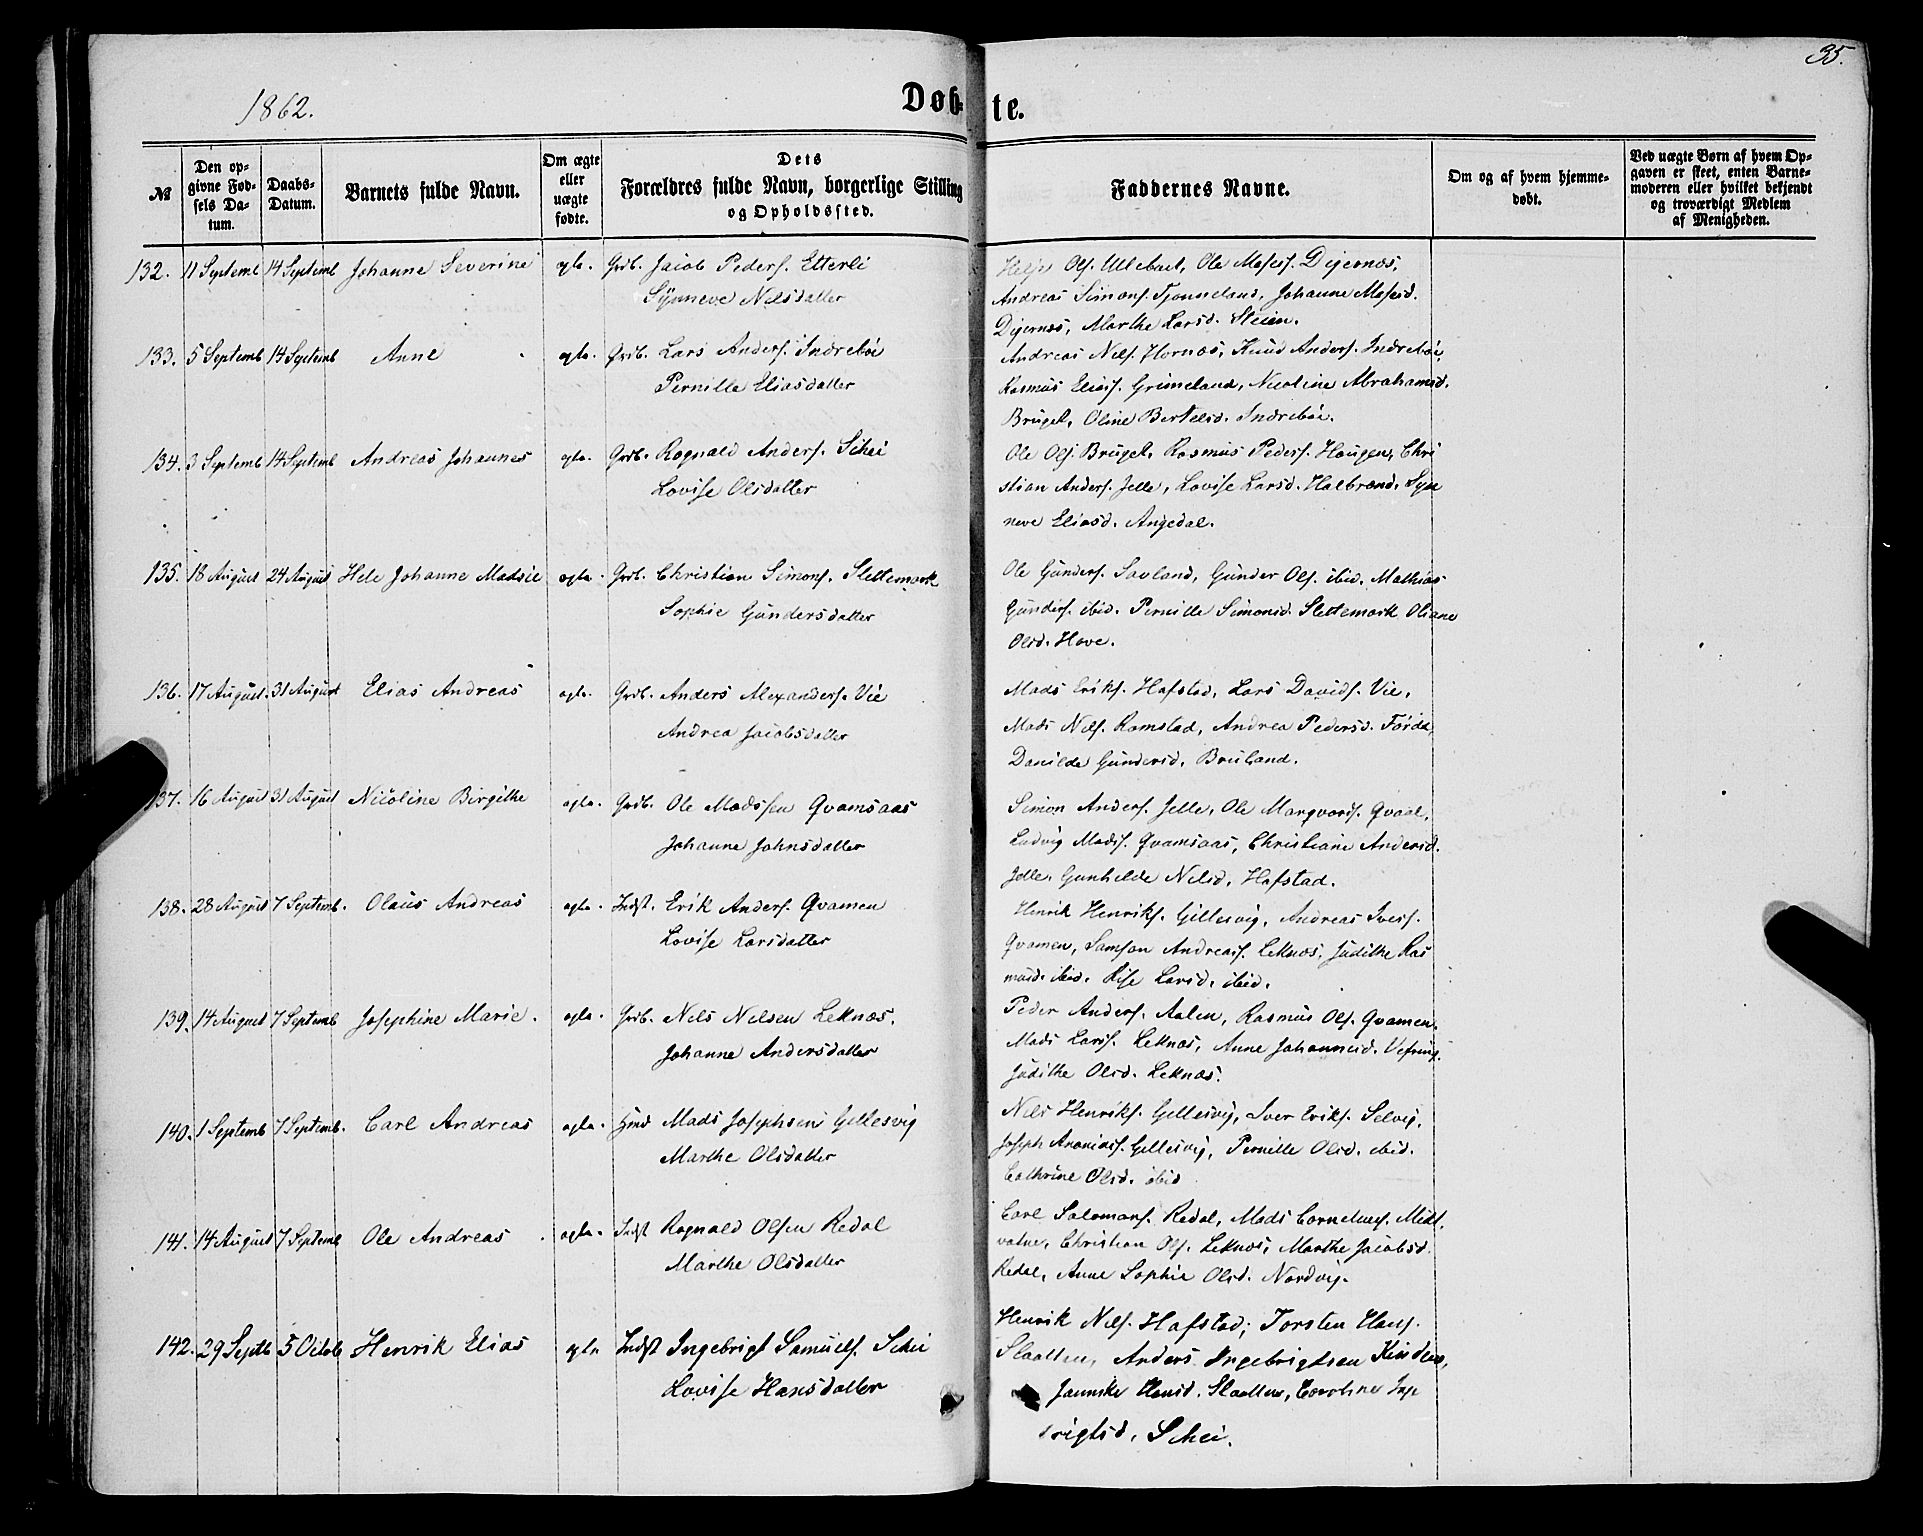 35.
1862.
Døb-
te.
№
Den op-
givne Fød-
sels Da-
tum.
Daabs-
Datum.
Barnets fulde Navn.
Om ægte
eller
uægte
fødte.
Dets
Forældres fulde Navn, borgerlige Stilling
og Opholdssted.
Faddernes Navne.
Om og af hvem hjemme-
døbt.
Ved uægte Børn af hvem Op-
gaven er skeet, enten Barne-
moderen eller hvilket bekjendt
og troværdigt Medlem
af Menigheden.
132. 11 Septemb 14 Septemb Johanne Severine ægte. Grdb. Jacob Peders. Etterli
Synneve Nelsdatter
Ols. Ullebust, Ole Moses. Digernæs,
Andreas Simons. Tjonneland, Johanne Mosesd.
Digernæs, Marthe Larsd. Steien.
133. 5 Septemb 14 Septemb Anne ægte. Grdb. Lars Anders. Indrebøe
Pernille Eliasdatter
Andreas Nels. Hornæs, Knud Anders. Indrebøe,
Rasmus Elias. Grimeland, Nicoline Abrahamsd.
Bruget, Oline Bertelsd. Indrebøe.
134. 3 Septemb 14 Septemb Andreas Johannes ægte. Grdb. Ragnald Anders. Schei
Lovise Olsdatter
Ole Ols. Bruget, Rasmus Peders. Hougen, Chri
stian Anders. Jelle, Lovise Larsd. Halbrend, Syn
neve Eliasd. Angedal.
135. 18 August 24 August Hele Johanne Madsie ægte. Grdb. Christian Simons. Slettemark
Sophie Gundersdatter
Ole Gunders. Savland, Gunder Ols. ibid. Mathias
Gunders. ibid. Pernille Simonsd. Slettemark Oliane
Olsd. Hove.
136. 17 August. 31 August Elias Andreas ægte. Grdb. Anders Alexanders. Vie
Andrea Jacobsdatter
Mads Eriks. Hafstad, Lars Davids. Vie,
Mads Nels. Ramstad, Andrea Pedersd. Førde,
Danilde Gundersd. Bruland.
137. 16 August 31 August Nicoline Birgithe ægte. Grdb. Ole Madssen Qvamsaas
Johanne Johnsdatter
Simon Anders. Jelle, Ole Marqvards. Qvaal,
Ludvig Mads. Qvamsaas, Christiane Andersd.
Jelle, Gunhilde Nelsd. Hafstad.
138. 28 August 7 Septemb. Olaus Andreas ægte. Indst. Erik Anders. Qvamen
Lovise Larsdatter
Henrik Henriks. Gillesvig, Andreas Ivers.
Qvamen, Samson Andreas. Leknæs, Judithe Ras
musd. ibid. Larsd. ibid.
139. 14 August 7 Septemb Josephine Marie. ægte. Grdb. Nels Nelsen Leknæs.
Johanne Andersdatter
Peder Anders. Aalen, Rasmus Ols. Qvamen.
Mads Lars. Leknæs, Anne Johannesd. Vefring.
Judithe Olsd. Leknæs.
140. 1 Septemb 7 Septemb. Carl Andreas ægte. Mads Josephsen Gillesvig
Marthe Olsdatter
Nels Henriks. Gillesvig, Iver Eriks. Selvig,
Joseph Ananias. Gillesvig, Pernille Olsd. ibid.
Cathrine Olsd. ibid
141. 14 August 7 Septemb Ole Andreas ægte. Indst Ragnald Olsen Redal
Marthe Olsdatter
Carl Salomons. Redal, Mads Cornelius. Midt
vatne, Christian Ols. Leknæs, Marthe Jacobsd.
Redal, Anne Sophie Olsd. Nordvig.
142. 29 Septb 5 Octob Henrik Elias ægte Indst Ingebrigt Samuels. Schei
Lovise Hansdatter
Henrik Nels. Hafstad; Torsten Hans.
Slaatten, Anders Ingebrigtsen
Jannike Hansd. Slaatten, Caroline Inge
brigtsd. Schei.